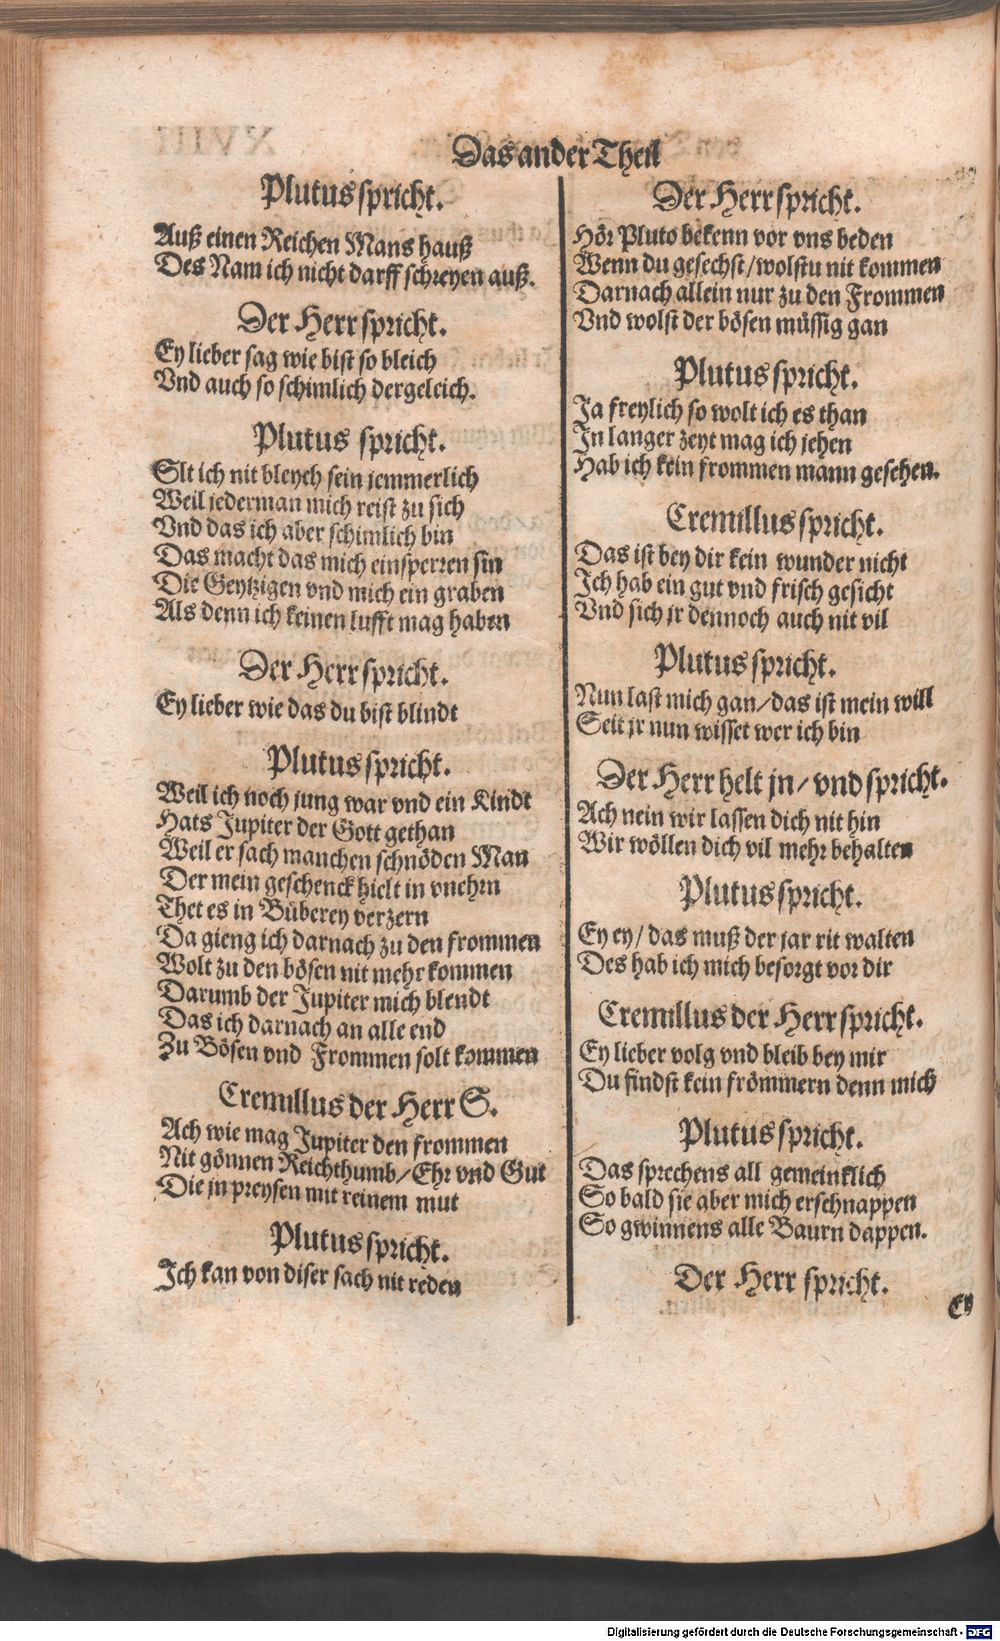 Das ander Theil
Plutus spricht.
Auß einen Reichen Mans hauß
Des Nam ich nicht darff schreyen auß.
Der Herr spricht.
Ey lieber sag wie bist so bleich
Vnd auch so schimlich dergeleich.
Plutus spricht.
Slt ich nit bleych sein jemmerlich
Weil jederman mich reist zu sich
Vnd das ich aber schimlich bin
Das macht das mich einsperren sin
Die Geytzigen vnd mich ein graben
Als denn ich keinen lufft mag haben
Der Herr spricht.
Ey lieber wie das du bist blindt
Plutus spricht.
Weil ich noch jung war vnd ein Kindt
Hats Jupiter der Gott gethan
Weil er sach manchen schnöden Man
Der mein geschenck hielt in vnehrn
Thet es in Büberey verzern
Da gieng ich darnach zu den frommen
Wolt zu den bösen nit mehr kommen
Darumb der Jupiter mich blendt
Das ich darnach an alle end
Zu Bösen vnd Frommen solt kommen
Cremillus der Herr S.
Ach wie mag Jupiter den frommen
Nit gönnen Reichthumb/Ehr vnd Gut
Die jn preysen mit reinem mut
Plutus spricht.
Ich kan von diser sach nit reden
Der Herr spricht.
Hör Pluto bekenn vor vns beden
Wenn du gesechst/wolstu nit kommen
Darnach allein nur zu den Frommen
Vnd wolst der bösen müssig gan
Plutus spricht.
Ja freylich so wolt ich es than
In langer zeyt mag ich jehen
Hab ich kein frommen mann gesehen.
Cremillus spricht.
Das ist bey dir kein wunder nicht
Ich hab ein gut vnd frisch gesicht
Vnd sich jr dennoch auch nit vil
Plutus spricht.
Nun last mich gan/das ist mein will
Seit jr nun wisset wer ich bin
Der Herr helt jn/ vnd spricht.
Ach nein wir lassen dich nit hin
Wir wöllen dich vil mehr behalten
Plutus spricht.
Ey ey/ das muß der jar rit walten
Des hab ich mich besorgt vor dir
Cremillus der Herr spricht.
Ey lieber volg vnd bleib bey mir
Du findst kein frömmern denn mich
Plutus spricht.
Das sprechens all gemeinklich
So bald sie aber mich erschnappen
So gwinnens alle Baurn dappen.
Der Herr spricht.
Ey
Digitalisierung gefördert durch die Deutsche Forschungsgemeinschaft - DFG